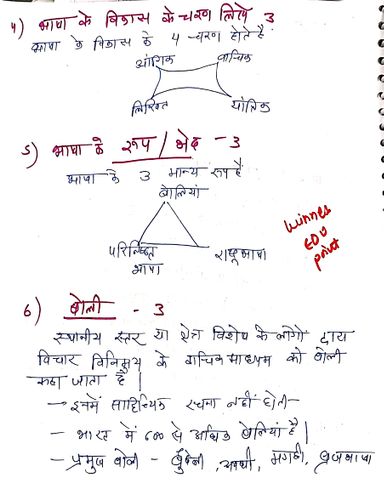 4) भाषा के विकास के चरण लिखे 3
भाषा के विकास के 4 चरण होते है
आंगिक वाचिक
लिखित यांत्रिक
5) भाषा के रूप / भेद - 3
भाषा के 3 मान्य रूप है
बोलियां
परिनिष्ठित भाषा राष्ट्रभाषा
winners
EDU
point
6) बोली - 3
स्थानीय स्तर या क्षेत्र विशेष के लोगो द्वारा
विचार विनिमय के वाचिक माध्यम को बोली
कहा जाता है |
→ इनमें साहित्यिक रचना नहीं होती -
- भारत में 600 से अधिक बोलियां है |
- प्रमुख बोली - बुंदेली, अवधी, मगही, ब्रजभाषा